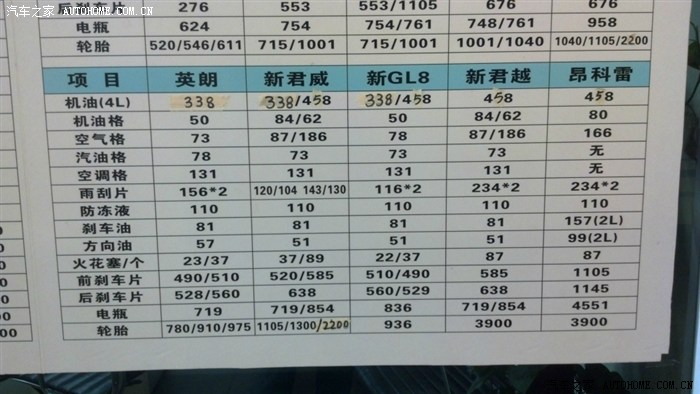 汽车之家 AUTOHOME.COM.CN
后刹车片 276 553 553/1105 676 676
电瓶 624 754 754/761 748/761 958
轮胎 520/546/611 715/1001 715/1001 1001/1040 1040/1105/2200
项目 英朗 新君威 新GL8 新君越 昂科雷
机油(4L) 338 338/458 338/458 458 458
机油格 50 84/62 50 84/62 80
空气格 73 87/186 78 87/186 166
汽油格 78 73 73 73 无
空调格 131 131 131 131 无
雨刮片 156*2 120/104 143/130 116*2 234*2 234*2
防冻液 110 110 110 110 110
刹车油 81 81 81 81 157(2L)
方向油 57 51 51 51 99(2L)
火花塞/个 23/37 37/89 22/37 87 87
前刹车片 490/510 520/585 510/490 585 1105
后刹车片 528/560 638 560/529 638 1145
电瓶 719 719/854 836 719/854 4551
轮胎 780/910/975 1105/1300/2200 936 3900 3900
汽车之家 AUTOHOME.COM.CN